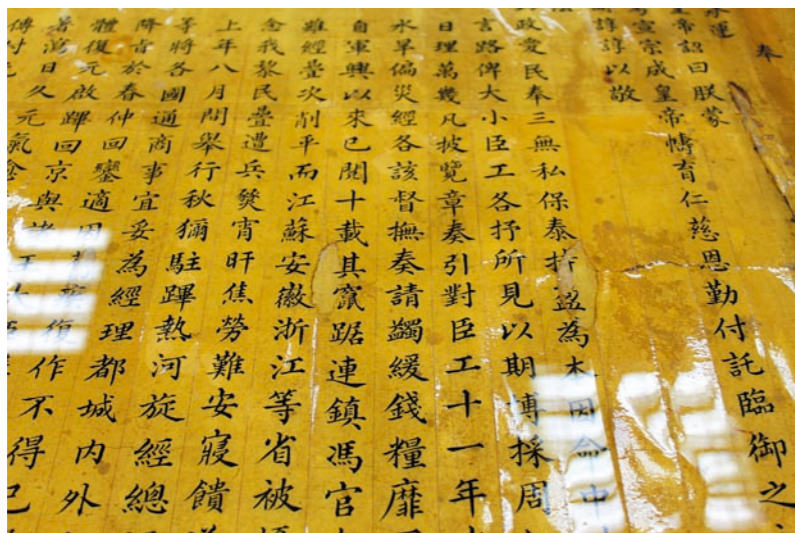 奉
承運
皇帝詔曰朕蒙
宣宗成皇帝幬育仁慈恩勤付託臨御之
諄諄以敬
政愛民奉三無私保泰持盈為本因命中
言路俾大小臣工各抒所見以期博採周
日理萬幾凡披覽章奏引對臣工十一年
水旱偏災經各該督撫奏請蠲緩錢糧靡
自軍興以來已閱十載其竄踞連鎮馮官
雖經疊次削平而江蘇安徽浙江等省被
念我黎民疊遭兵燹宵旰焦勞難安寢饋
上年八月間舉行秋獮駐蹕熱河旋經總
等將各國通商事宜妥為經理都城內外
降旨於春仲回鑾適因復作不得已
體復元啟蹕回京與諸王大
暑瀉日久元氣
傳付